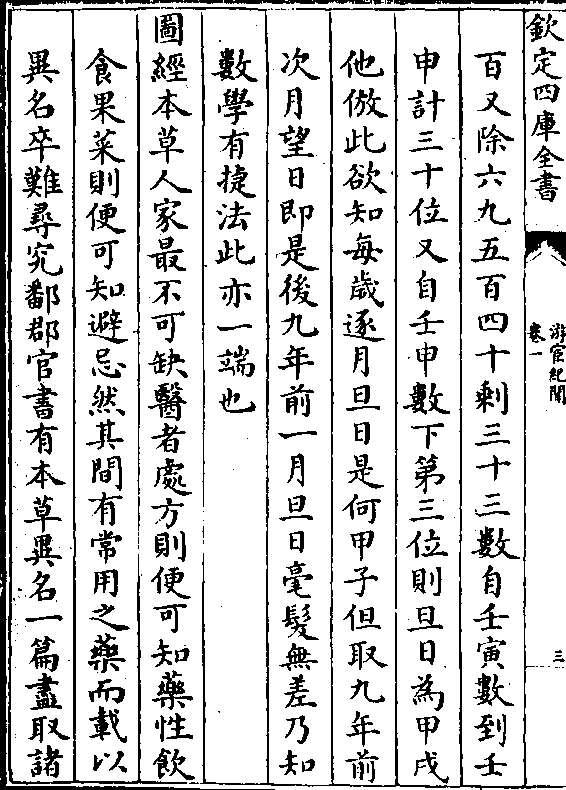 欽定四庫全書
游宦紀聞
卷一
三
百又除六九五百四十剩三十三數自壬寅數到壬
申計三十位又自壬申數下第三位則旦日為甲戌
他倣此欲知每歲逐月旦日是何甲子但取九年前
次月望日即是後九年前一月旦日毫髮無差乃知
數學有捷法此亦一端也
圖經本草人家最不可缺醫者處方則便可知藥性飲
食果菜則便可知避忌然其間有常用之藥而載以
異名卒難尋究鄱郡官書有本草異名一篇盡取諸